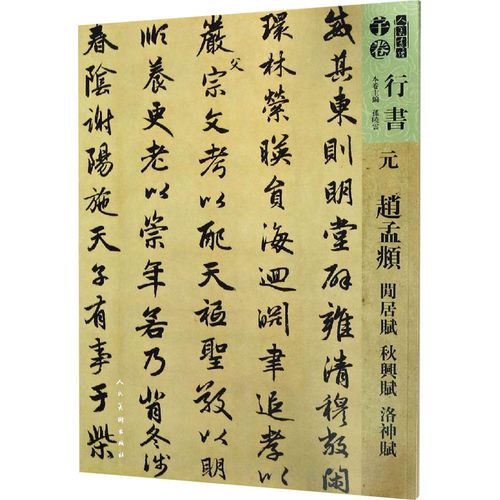 人美書譜
宇卷
行書
本卷主編 孫曉雲
元
趙孟頫
閒居賦 秋興賦 洛神賦
威其東則明堂辟雍清穆敞閑
環林縈暎員海迴淵聿追孝以
嚴父宗文考以配天祗聖敬以明
順養更老以崇年若乃背冬涉
春陰謝陽施天子有事于柴
人民美術出版社